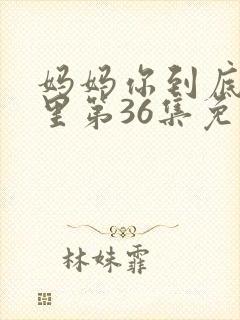 妈妈你到底
里第36集免
林妹霏